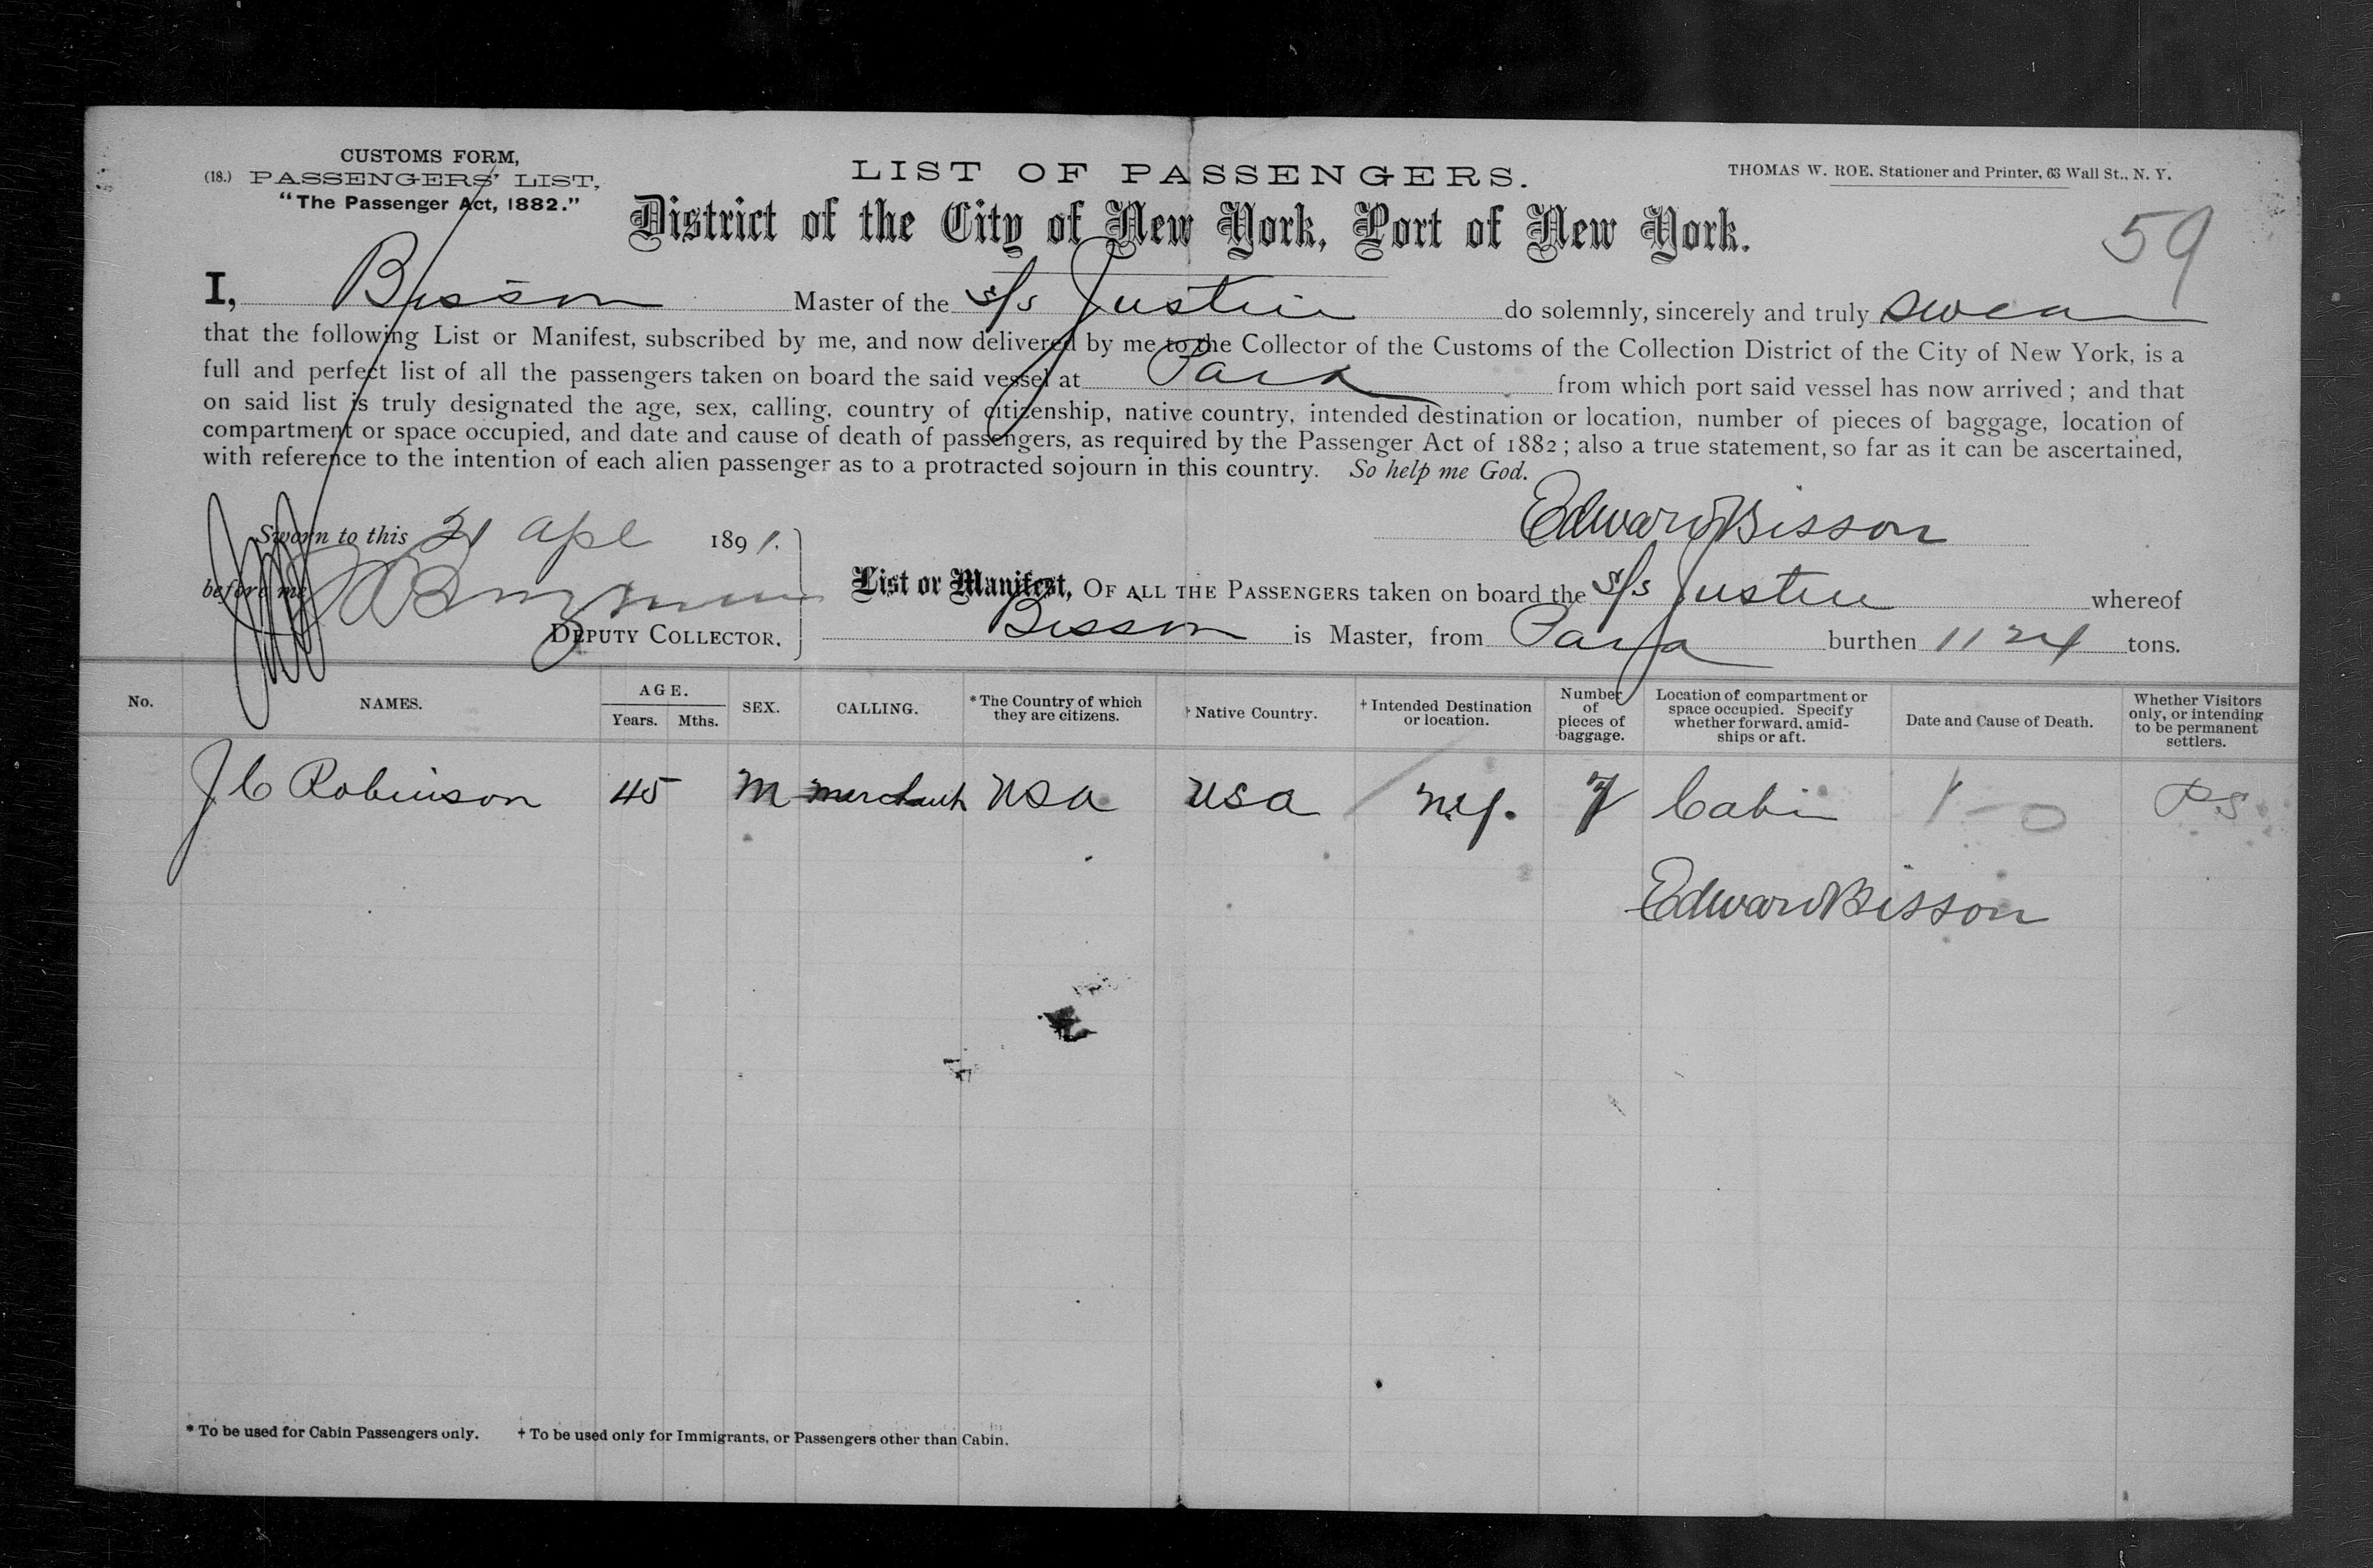 CUSTOMS FORM,
(18.) PASSENGERS' LIST,
"The Passenger Act, 1882."
LIST OF PASSENGERS.
THOMAS W. ROE, Stationer and Printer, 63 Wall St., N. Y.
District of the City of New York, Port of New York.
59
I, Bisson Master of the s/s Justin do solemnly, sincerely and truly swear
that the following List or Manifest, subscribed by me, and now delivered by me to the Collector of the Customs of the Collection District of the City of New York, is a
full and perfect list of all the passengers taken on board the said vessel at Para from which port said vessel has now arrived; and that
on said list is truly designated the age, sex, calling, country of citizenship, native country, intended destination or location, number of pieces of baggage, location of
compartment or space occupied, and date and cause of death of passengers, as required by the Passenger Act of 1882; also a true statement, so far as it can be ascertained,
with reference to the intention of each alien passenger as to a protracted sojourn in this country. So help me God.
Edward Bisson
Sworn to this 21 Apl 1891.
before me
DEPUTY COLLECTOR.
List or Manifest, OF ALL THE PASSENGERS taken on board the s/s Justin whereof
Bisson is Master, from Para burthen 1124 tons.
No. NAMES. AGE. Years. Mths. SEX. CALLING. *The Country of which they are citizens. †Native Country. †Intended Destination or location. Number of pieces of baggage. Location of compartment or space occupied. Specify whether forward, amidships or aft. Date and Cause of Death. Whether Visitors only, or intending to be permanent settlers.
J C Robinson 45 M merchant USA USA N.Y. 7 Cabin 1-0 P.S
Edward Bisson
* To be used for Cabin Passengers only. † To be used only for Immigrants, or Passengers other than Cabin.